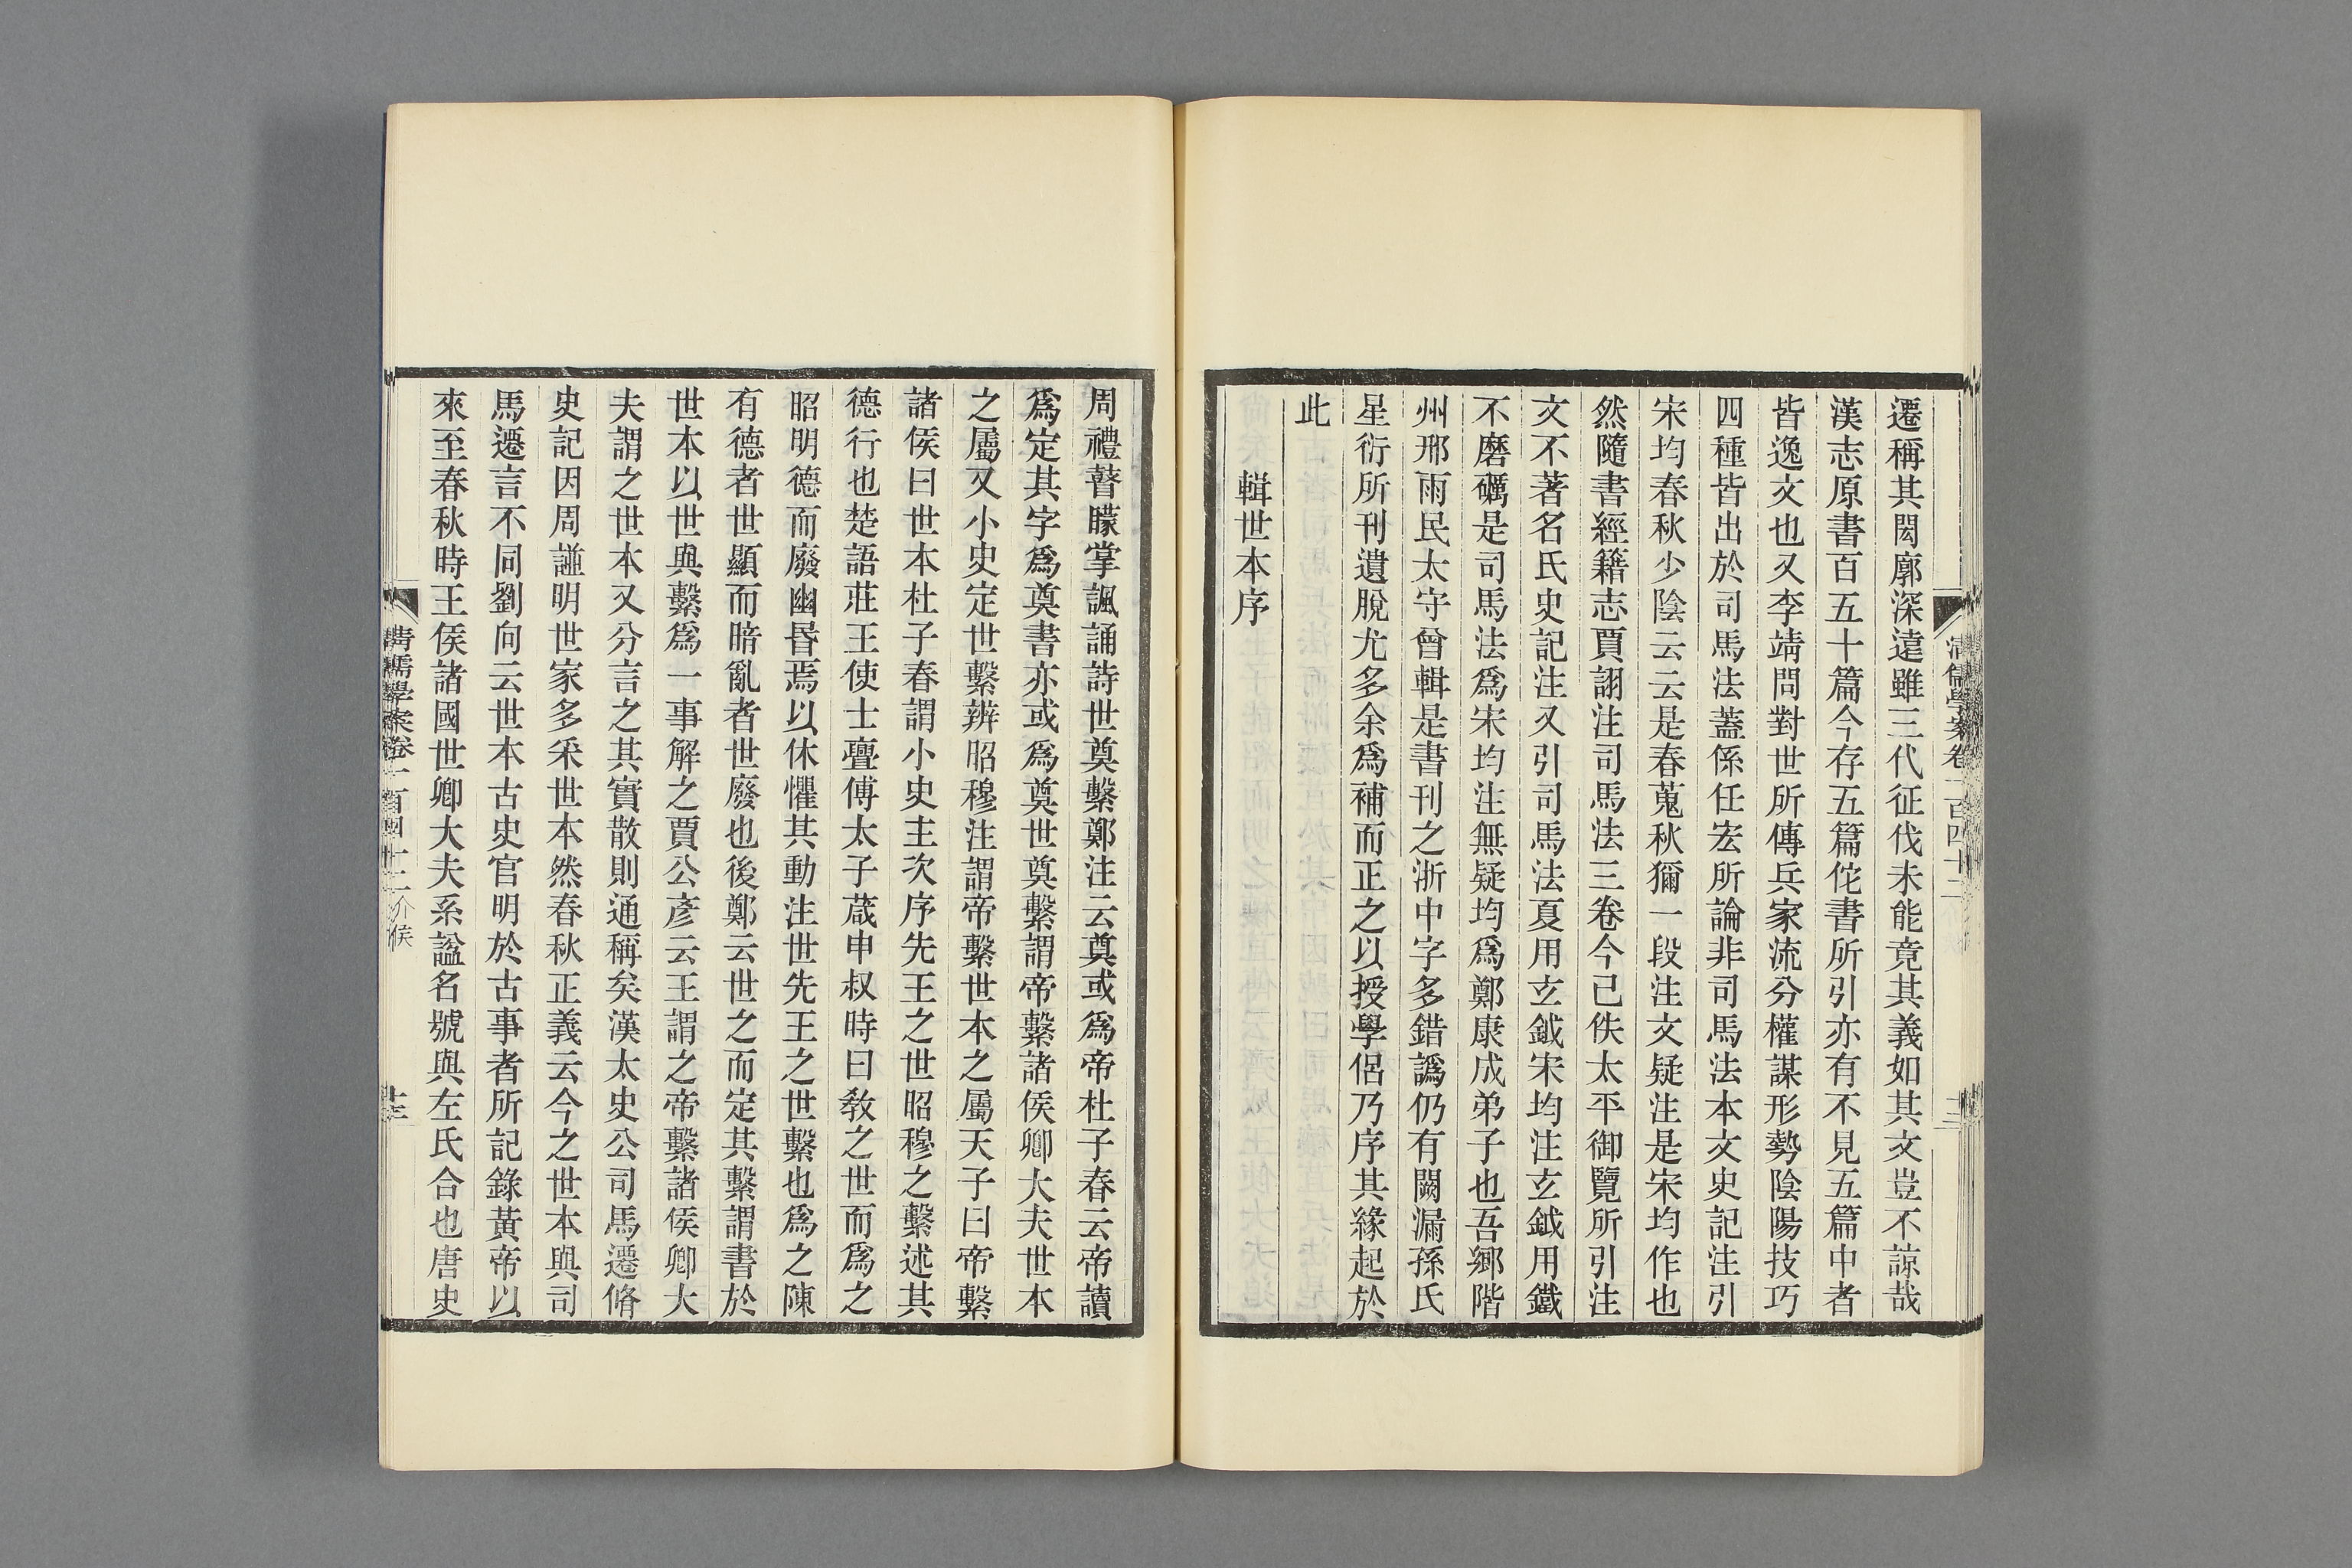 遷稱其閎廓深遠雖三代征伐未能竟其義如其文豈不諒哉
漢志原書百五十篇今存五篇佗書所引亦有不見五篇中者
皆逸文也又李靖問對世所傳兵家流分權謀形勢陰陽技巧
四種皆出於司馬法蓋係任宏所論非司馬法本文史記注引
宋均春秋少陰云云是春蒐秋獮一段注文疑注是宋均作也
然隨書經籍志賈詡注司馬法三卷今己佚太平御覽所引注
文不著名氏史記注又引司馬法夏用玄鉞宋均注玄鉞用鐵
不磨礪是司馬法爲宋均注無疑均爲鄭康成弟子也吾鄉階
州邢雨民太守曾輯是書刊之浙中字多錯譌仍有闕漏孫氏
星衍所刊遺脫尤多余爲補而正之以授學侶乃序其緣起於
此
輯世本序
周禮瞽矇掌諷誦詩世奠繫鄭注云奠或爲帝杜子春云帝讀
爲定其字爲奠書亦或爲奠世奠繫謂帝繫諸侯卿大夫世本
之屬又小史定世繫辨昭穆注謂帝繫世本之屬天子曰帝繫
諸侯曰世本杜子春謂小史主次序先王之世昭穆之繫述其
德行也楚語莊王使士亹傅太子葴申叔時曰敎之世而爲之
昭明德而廢幽昬焉以休懼其動注世先王之世繫也爲之陳
有德者世顯而暗亂者世廢也後鄭云世之而定其繫謂書於
世本以世與繫爲一事解之賈公彥云王謂之帝繫諸侯卿大
夫謂之世本又分言之其實散則通稱矣漢太史公司馬遷脩
史記因周譜明世家多采世本然春秋正義云今之世本與司
馬遷言不同劉向云世本古史官明於古事者所記錄黃帝以
來至春秋時王侯諸國世卿大夫系謚名號與左氏合也唐史
清儒學案卷一百四十二 介侯
十三